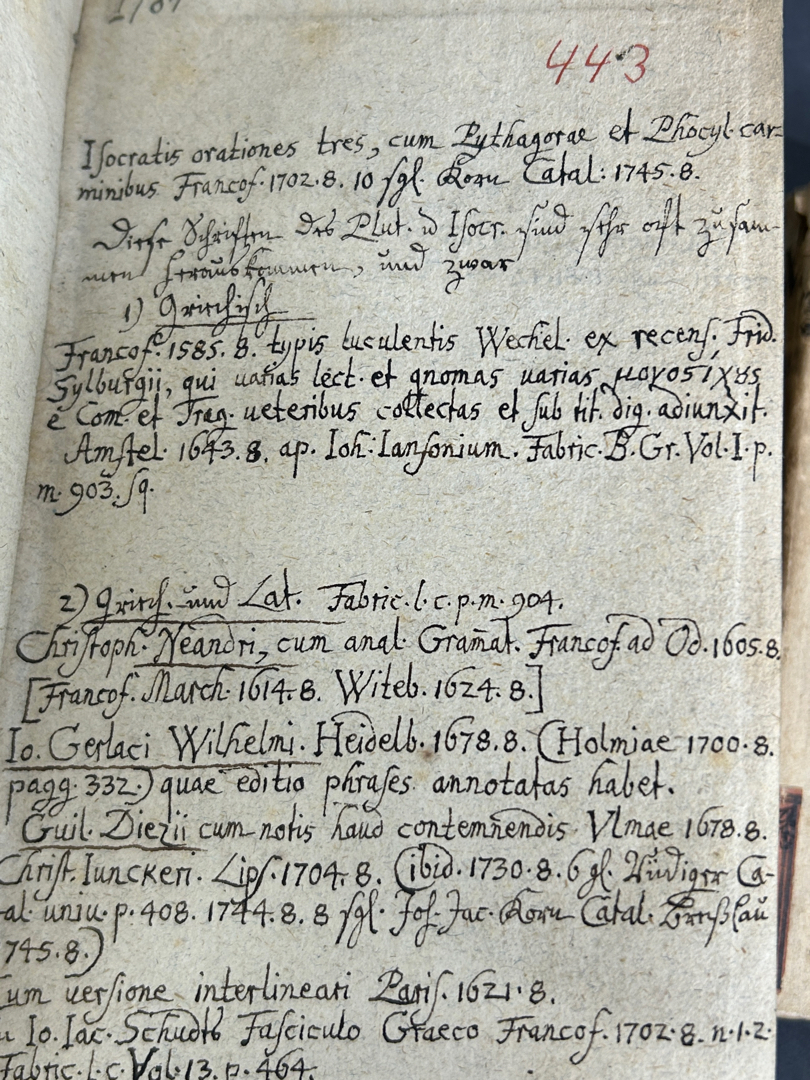 443
Isocratis orationes tres, cum Pythagorae et Phocyl. car=
minibus Francof. 1702. 8. 10 sgl. Korn Catal: 1745. 8.
Diese Schriften des Plut. u Isocr. sind sehr oft zusam-
men herauskommen, und zwar
1) Griechisch
Francof. 1585. 8. typis luculentis Wechel. ex recens. Frid.
Sylburgii, qui varias lect. et gnomas varias μονοστίχους
e Com. et Trag. veteribus collectas et sub tit. dig. adiunxit.
Amstel. 1643. 8. ap. Ioh: Iansonium. Fabric. B. Gr. Vol. I. p.
m. 903. sq.
2) Griech. und Lat. Fabric. l. c. p. m. 904.
Christoph. Neandri, cum anal. Gram̄at. Francof. ad Od. 1605. 8.
[Francof. March. 1614. 8. Witeb. 1624. 8.]
Io. Gerlaci Wilhelmi. Heidelb. 1678. 8. (Holmiae 1700. 8.
pagg. 332.) quae editio phrases annotatas habet.
Guil. Diezii cum notis haud contem̄endis Vlmae 1678. 8.
Christ. Iunckeri. Lips. 1704. 8. (ibid. 1730. 8. 6 gl. Rüdiger Ca-
al. uniu. p. 408. 1744. 8. 8 sgl. Joh. Jac. Korn Catal. Breßlau
745. 8.)
um versione interlineari Paris. 1621. 8.
Io. Iac. Schudts Fasciculo Graeco Francof. 1702. 8. n. 1. 2.
Fabric. l. c. Vol. 13. p. 464.